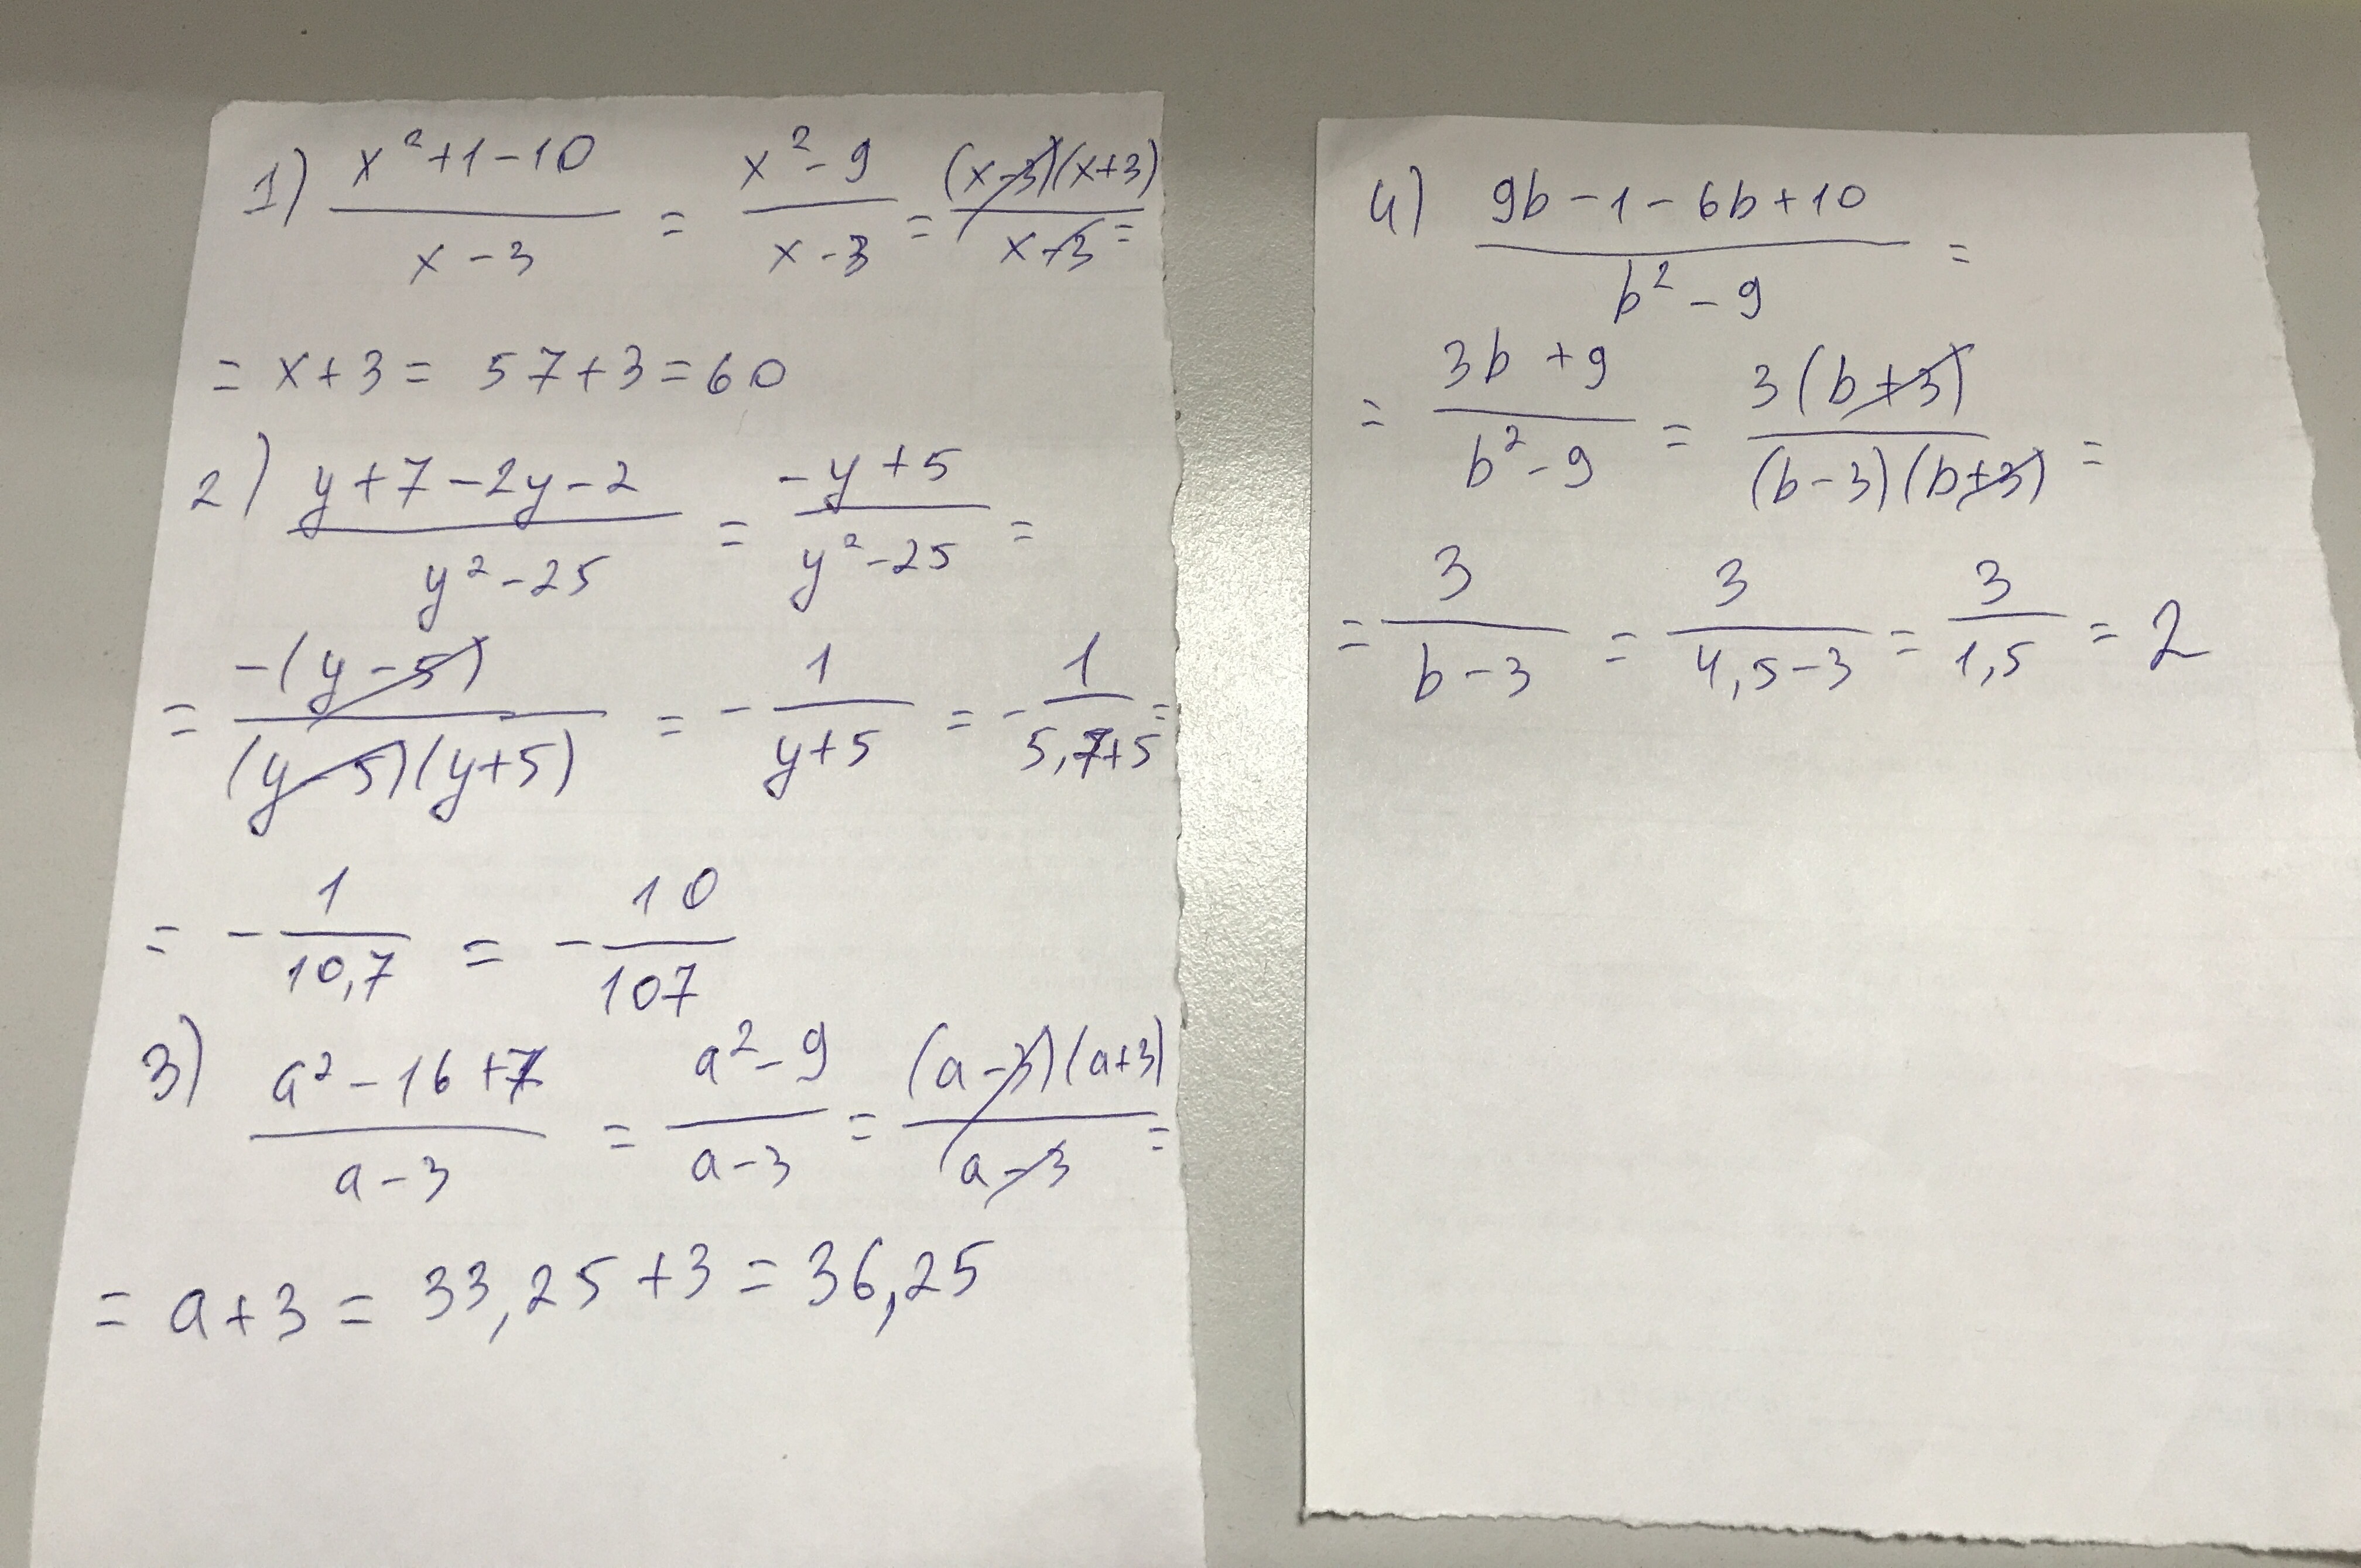 1) (x²+1-10)/(x-3) = (x²-9)/(x-3) = ((x-3)(x+3))/(x-3) =
= x+3 = 57+3=60
2) (y+7-2y-2)/(y²-25) = (-y+5)/(y²-25) =
= (-(y-5))/((y-5)(y+5)) = -1/(y+5) = -1/(5,7+5) =
= -1/(10,7) = -10/107
3) (a²-16+7)/(a-3) = (a²-9)/(a-3) = ((a-3)(a+3))/(a-3) =
= a+3 = 33,25+3=36,25
4) (9b-1-6b+10)/(b²-9) =
= (3b+9)/(b²-9) = (3(b+3))/((b-3)(b+3)) =
= 3/(b-3) = 3/(4,5-3) = 3/(1,5) = 2